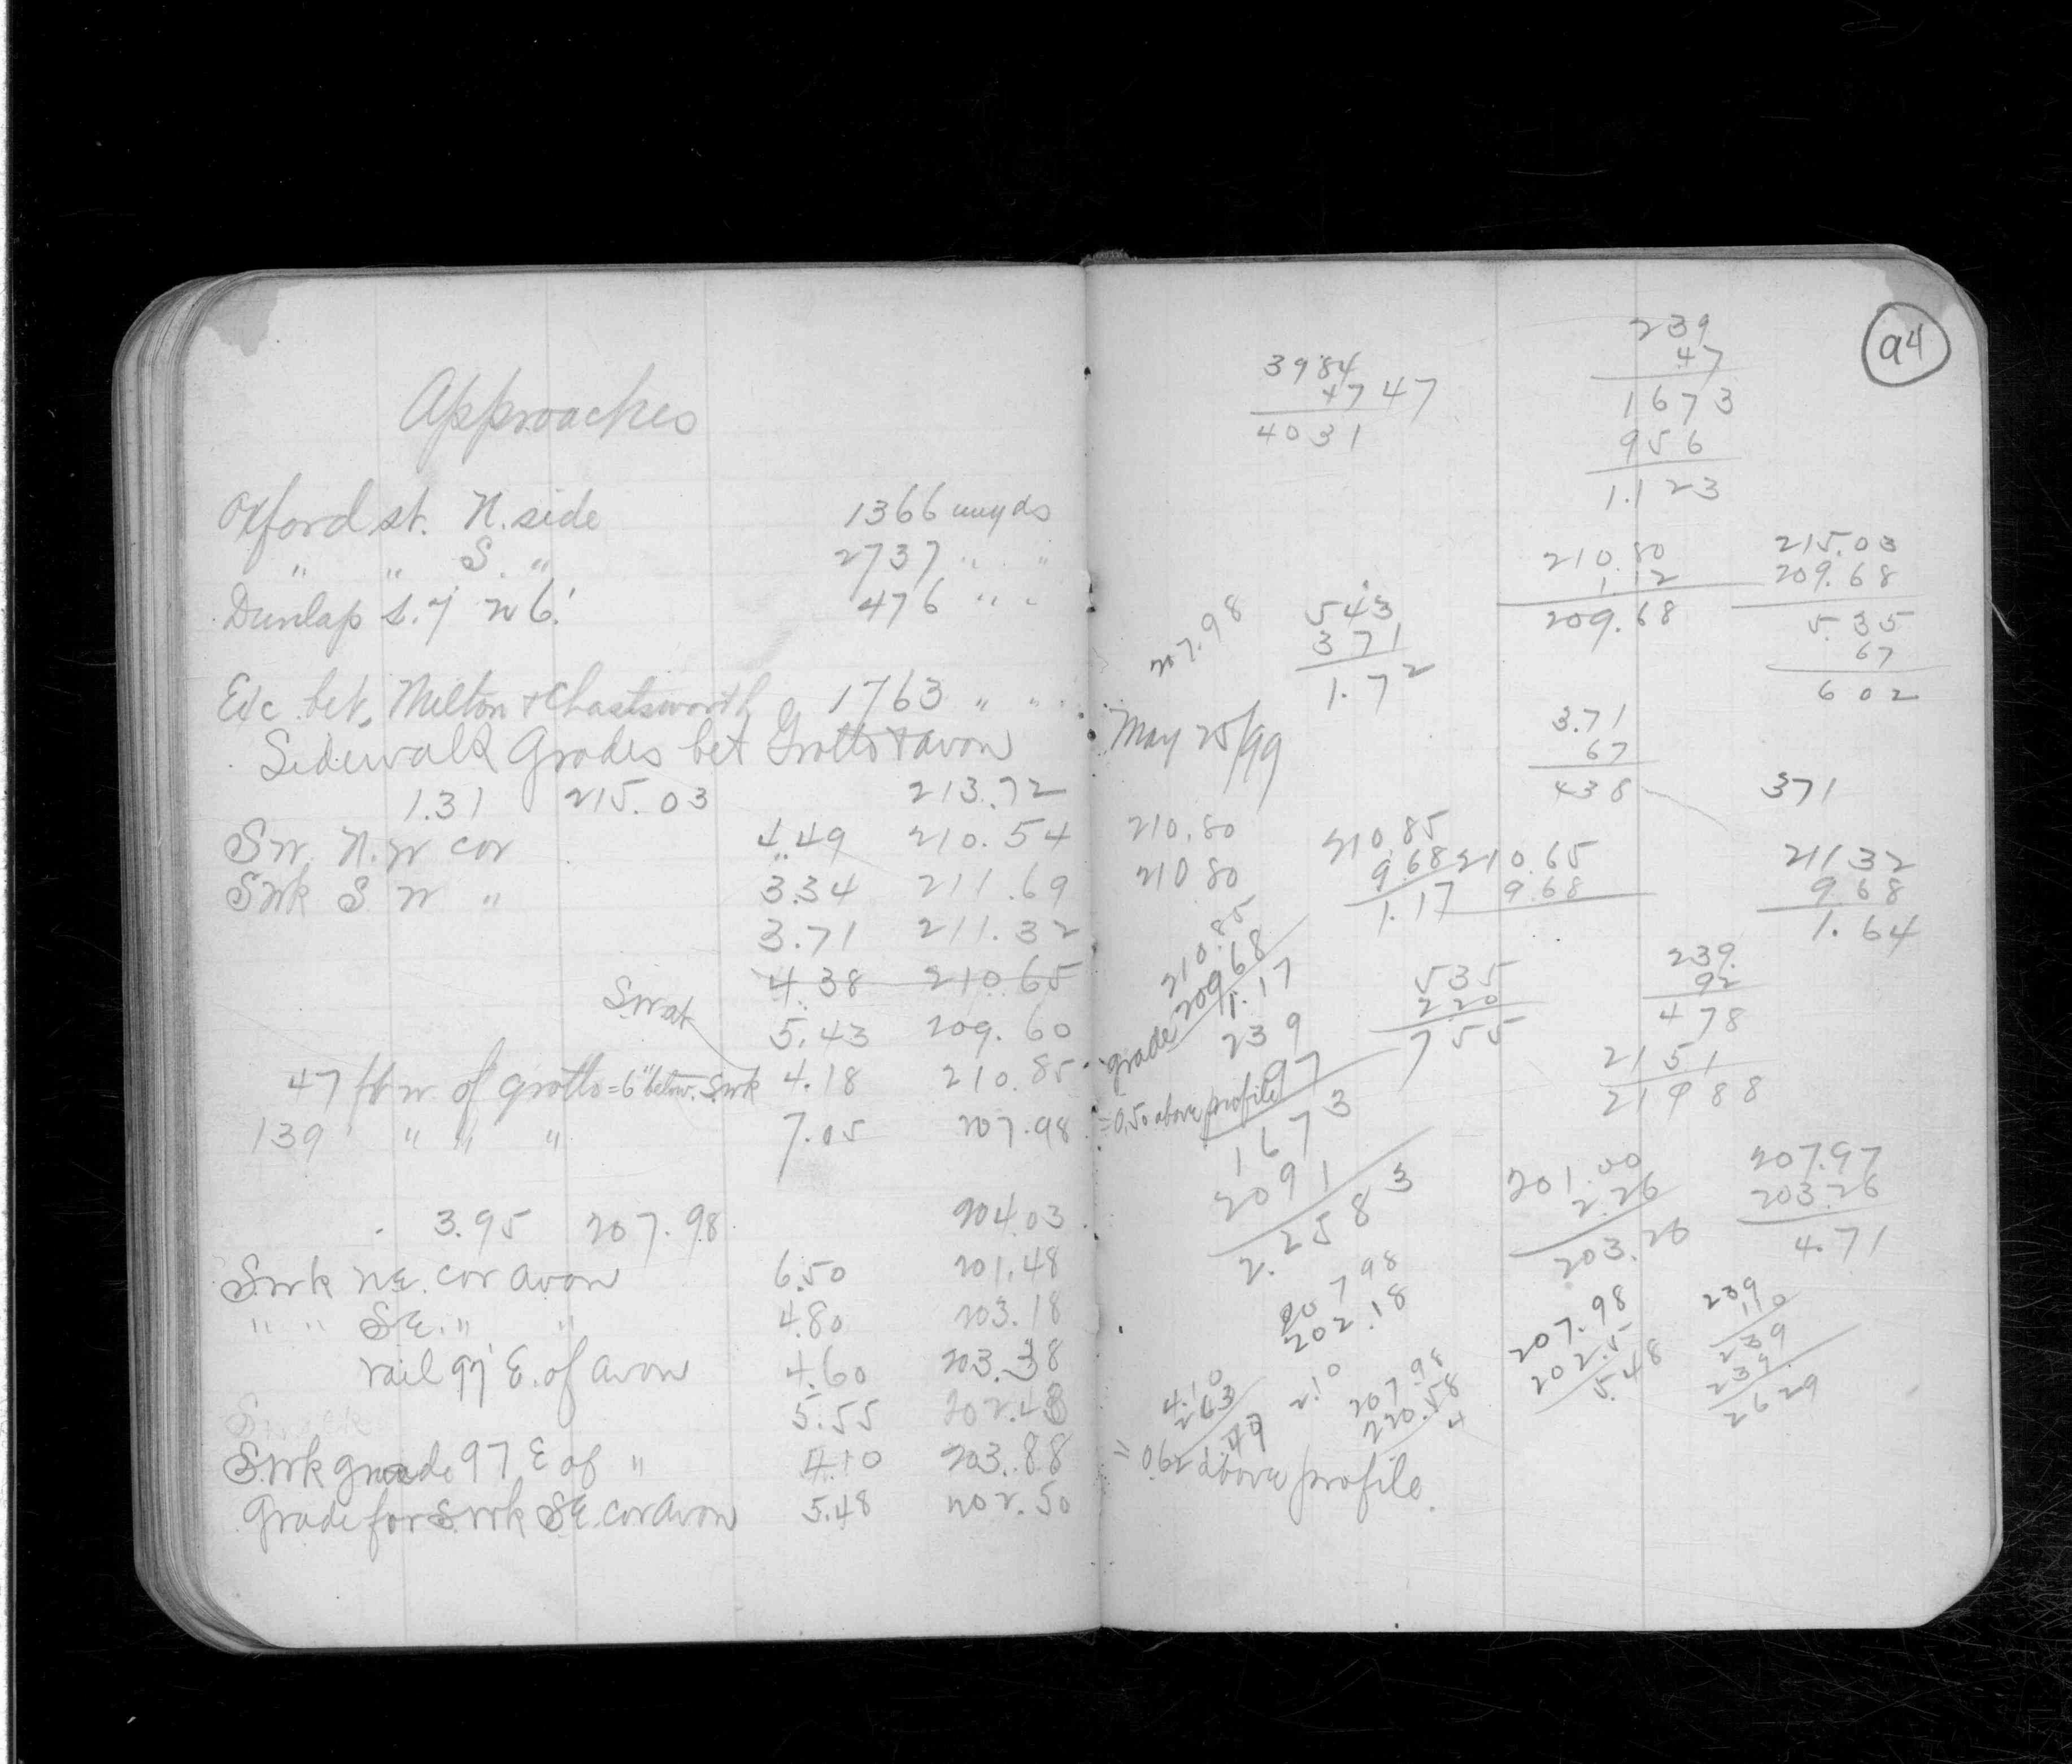 Approaches
Oxford st. N. side 1366
" " S. " 2737 " "
Dunlap 476 " "
Exc. bet. Milton + Chatsworth 1763 " "
Sidewalk Grades bet Grotto + Avon
1.31 215.03 213.72
Sw. N.W cor 4.49 210.54
Swk S W " 3.34 211.69
3.71 211.32
4.38 210.65
Swat 5.43 209.60
47 ft w. of Grotto = 6" below Swk 4.18 210.85
139 " " " 7.05 207.98
3.95 207.98 204.03
Swk NE. cor Avon 6.50 201.48
" " SE. " " 4.80 203.18
rail 97' E. of Avon 4.60 203.38
5.55 202.43
Swk grade 97 E of " 4.10 203.88
Grade for Swk SE. cor Avon 5.48 202.50
94
3984
47 47
4031
239
47
1673
956
1.123
210.80
1.12
209.68
215.03
209.68
5.35
67
602
207.98
543
371
1.72
May 25/99
3.71
67
438
371
210.80
210 80
210.85
9.68
1.17
210.65
9.68
211 32
9 68
1.64
210.85
grade 209.68
1.17
239
97
= 0.50 above profile
1673
2091
2.2583
535
220
755
239
92
478
2151
21988
201.00
2.26
203.26
207.97
203.26
4.71
207 98
202.18
207.98
202.5
5.48
239
110
239
239
2629
4.10
263
49
210
207.98
220.58
= 0.62 above profile.